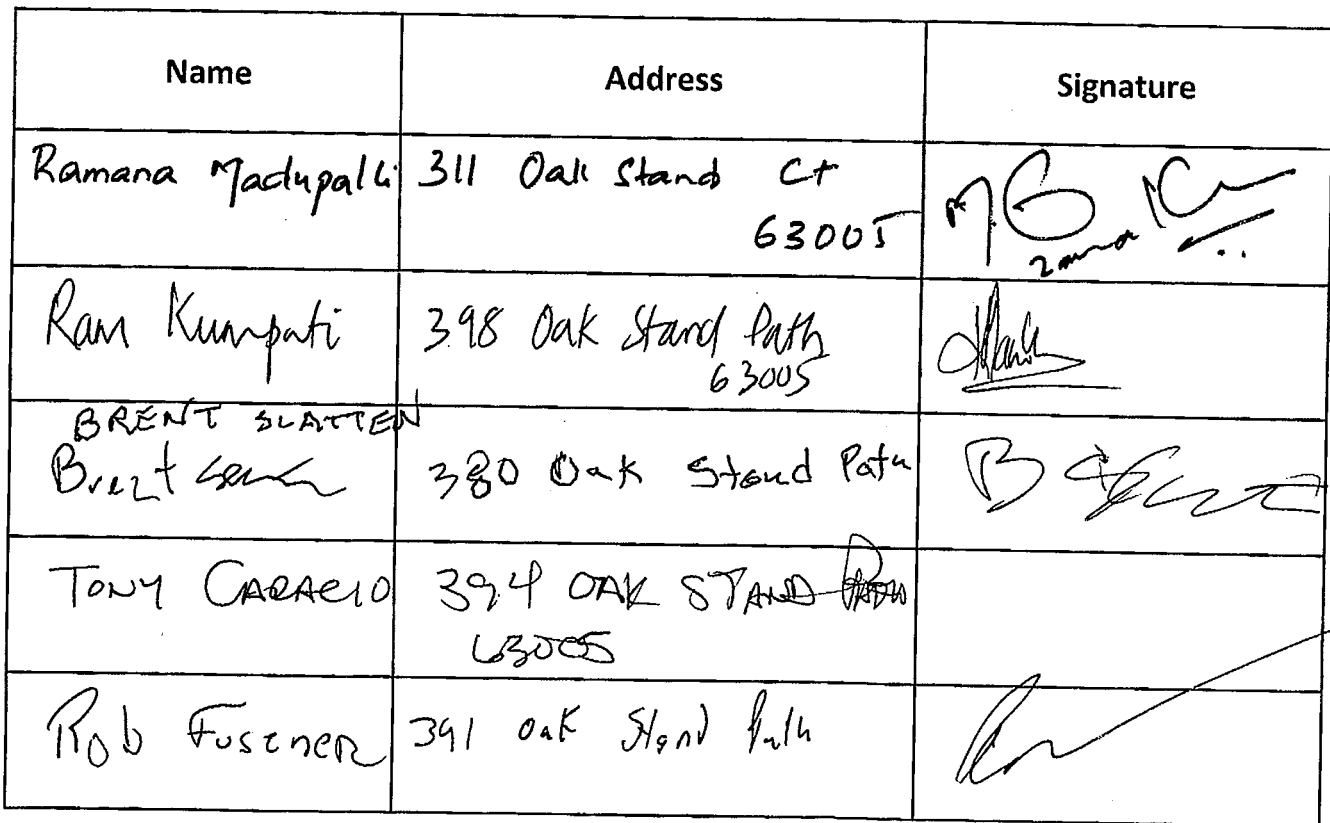 Name Address Signature
Ramana Madupalli 311 Oak Stand Ct
63005
Ram Kumpati 398 Oak Stand Path
63005
BRENT SLATTEN
Brent 380 Oak Stand Path
TONY CARACIO 394 OAK STAND PATH
63005
Rob Fuszner 391 Oak Stand Path